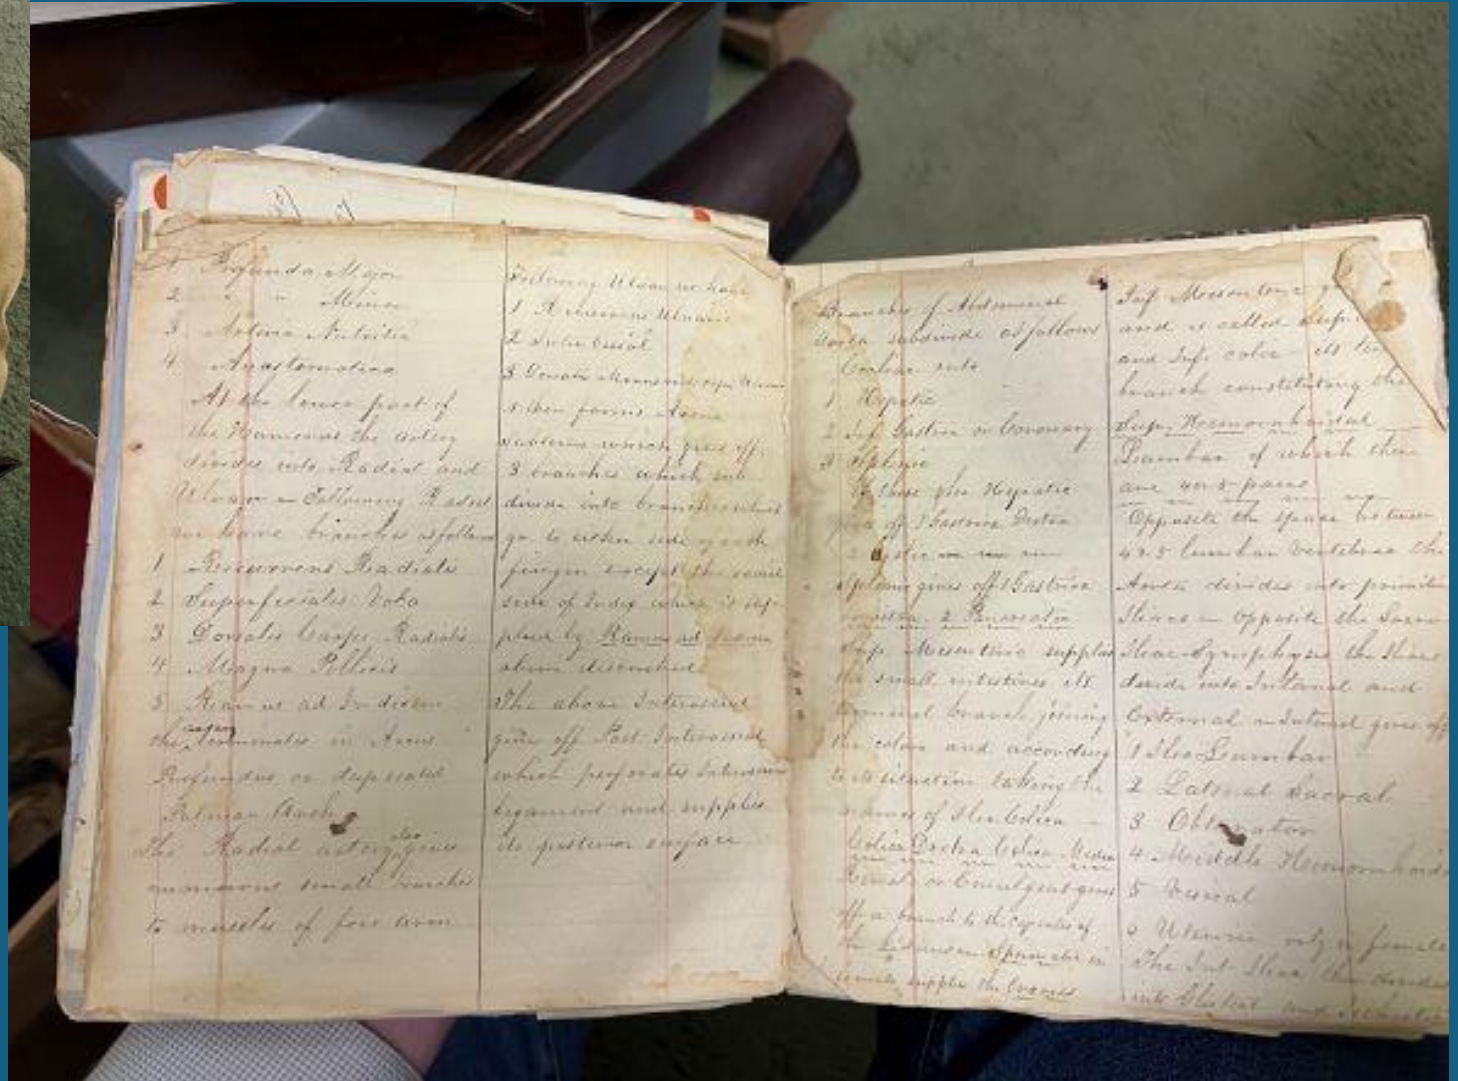 1 Profunda Major
2 " " Minor
3 Arteria Nutritia
4 Anastomotica
At the lower part of
the Humerus the artery
divides into Radial and
Ulnar Following Radial
we have branches as follows
1 Recurrens Radialis
2 Superficialis Vola
3 Dorsalis Carpi Radialis
4 Magna Pollicis
5 Ramus ad Indicem
the terminates in Arcus
Profundus or deep seated
Palmar Arch
The Radial artery also gives
numerous small branches
to muscles of fore arm
Following Ulnar we have
1 Recurrens Ulnaris
2 Inter Ossial
3 Dorsalis
then forms Arcus
sublimis which gives off
3 branches which sub
divide into branches which
go to either side of each
finger except the radial
side of Index which is sup-
plied by Ramus ad
above described
The above Interosseal
give off Post Interosseal
which perforates Interosseus
ligament and supplies
its posterior surface
Branches of Abdominal
Aorta subdivide as follows
Coeliac into
1 Hepatic
2 Gastric or Coronary
3 Splenic
Of these the Hepatic
give off 1 Gastrica Dextra
2 Cystic
Splenic gives off 1 Gastrica
sinistra 2 Pancreatic
Sup. Mesenteric supplies
the small intestines its
terminal branch joining
the colon and according
to its situation taking the
names of Ileo Colica
Colica Dextra Colica Media
Renals or Emulgent gives
off a branch to the capsules of
the Spermatic in
female supplies the Ovaries
Inf Mesenteric
and is called
and Inf. colic its
branch constituting the
Sup. Hemorrhoidal
Lumbar of which there
are 4 or 5 pairs
Opposite the space between
4 & 5 lumbar vertebrae the
Aorta divides into primitive
Iliacs opposite the Sacro
Iliac Symphysis the Iliacs
divide into Internal and
External Internal gives off
1 Ileo Lumbar
2 Lateral Sacral
3 Obturator
4 Middle Hemorrhoidal
5 Vesical
6 Uterine only in female
The Int. Iliac then divides
into Gluteal and